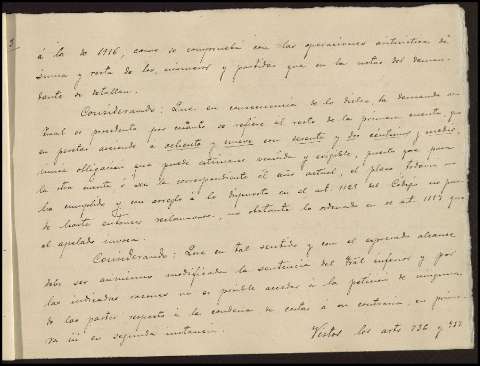 á la de 1916, como se comprueba con las operaciones aritmética de
suma y resta de los números y partidas que en la notas del deman-
dante se detallan.
Considerando: Que en consecuencia de lo dicho, la demanda ini-
cial es procedente por cuanto se refiere al resto de la primera cuenta, que
en pesetas asciende a ochenta y nueve con sesenta y dos céntimos y medio,
unica obligación que puede estimarse vencida y exigible, puesto que para
la otra cuenta ó sea la correspondiente al año actual, el plazo todavia no
ha cumplido y con arreglo á lo dispuesto en el art. 1125 del Código no pue-
de hasta entonces reclamarse, no obstante lo ordenado en el art. 1157 que
el apelado invoca.
Considerando: Que en tal sentido y con el expresado alcance
debe ser asimismo modificada la sentencia del Tral inferior y por
las indicadas razones no es posible acceder á la petición de ninguna
de las partes respecto á la condena de costas á su contraria, en prime-
ra ni en segunda instancia.
Vistos los arts 736 y